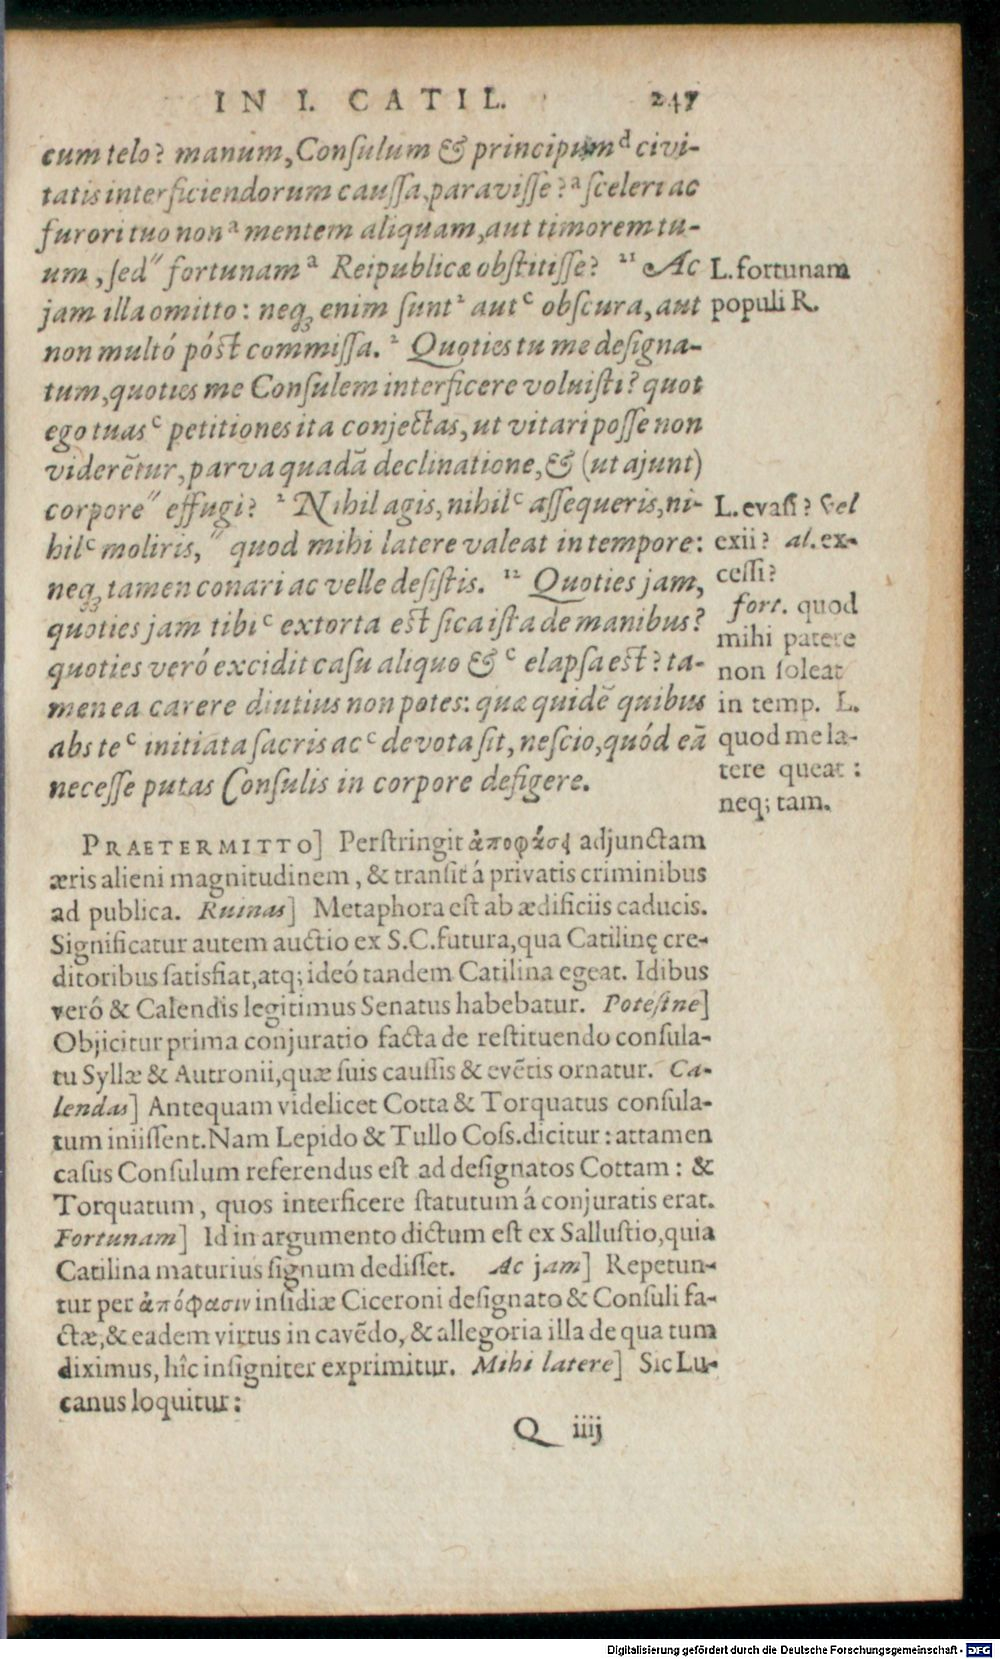 IN I. CATIL. 247
cum telo? manum, Conſulum & principum ᵈ civi-
tatis interficiendorum cauſſa, paraviſſe? ᵃ ſceleri ac
furori tuo non ᵃ mentem aliquam, aut timorem tu-
um, ſed " fortunam ᵃ Reipublicæ obſtitiſſe? ¹¹ Ac
jam illa omitto: neq; enim ſunt ² aut ᶜ obſcura, aut
non multó póſt commiſſa. ² Quoties tu me deſigna-
tum, quoties me Conſulem interficere voluiſti? quot
ego tuas ᶜ petitiones ita conjectas, ut vitari poſſe non
viderētur, parva quadā declinatione, & (ut ajunt)
corpore " effugi? ² Nihil agis, nihil ᶜ aſſequeris, ni-
hil ᶜ moliris, " quod mihi latere valeat in tempore:
neq; tamen conari ac velle deſiſtis. ¹² Quoties jam,
quoties jam tibi ᶜ extorta eſt ſica iſta de manibus?
quoties veró excidit caſu aliquo & ᶜ elapſa eſt? ta-
men ea carere diutius non potes: quæ quidē quibus
abs te ᶜ initiata ſacris ac ᶜ devota ſit, neſcio, quód eā
neceſſe putas Conſulis in corpore defigere.
L. fortunam
populi R.
L. evaſi? Vel
exii? al. ex-
ceſſi?
fort. quod
mihi patere
non ſoleat
in temp. L.
quod me la-
tere queat:
neq; tam.
PRAETERMITTO] Perſtringit ἀποφάσϛ adjunctam
æris alieni magnitudinem, & tranſit á privatis criminibus
ad publica. Ruinas] Metaphora eſt ab ædificiis caducis.
Significatur autem auctio ex S.C. futura, qua Catilinę cre-
ditoribus ſatisfiat, atq; ideó tandem Catilina egeat. Idibus
veró & Calendis legitimus Senatus habebatur. Poteſtne]
Objicitur prima conjuratio facta de reſtituendo conſula-
tu Syllæ & Autronii, quæ ſuis cauſſis & evētis ornatur. Ca-
lendas] Antequam videlicet Cotta & Torquatus conſula-
tum iniiſſent. Nam Lepido & Tullo Coſs. dicitur: attamen
caſus Conſulum referendus eſt ad deſignatos Cottam: &
Torquatum, quos interficere ſtatutum á conjuratis erat.
Fortunam] Id in argumento dictum eſt ex Salluſtio, quia
Catilina maturius ſignum dediſſet. Ac jam] Repetun-
tur per ἀπόφασιν inſidiæ Ciceroni deſignato & Conſuli fa-
ctæ, & eadem virtus in cavēdo, & allegoria illa de qua tum
diximus, hîc inſigniter exprimitur. Mihi latere] Sic Lu-
canus loquitur:
Q iiij
Digitalisierung gefördert durch die Deutsche Forschungsgemeinschaft - DFG